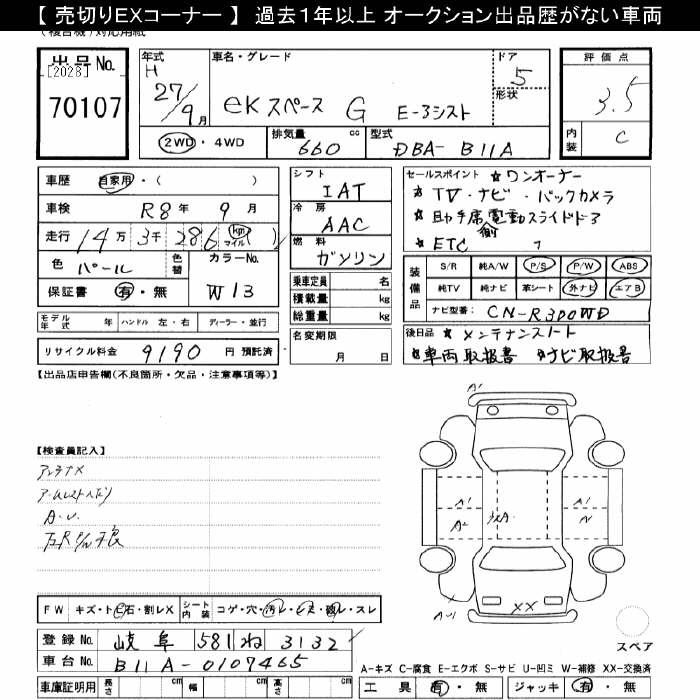 【 売切りEXコーナー 】 過去1年以上 オークション出品歴がない車両
(複合機)対応用紙
出品No. [2028] 70107
年式 H 27/9月
車名・グレード eKスペース G E-アシスト
ドア 5
形状
評価点 3.5
内装 C
2WD・4WD
排気量 660 cc
型式 DBA- B11A
車歴 自家用・( )
車検 R8年 9月
走行 14万 3千 286 km マイル ( )
色 パール
色替
カラーNo. W13
保証書 有・無
シフト IAT
冷房 AAC
燃料 ガソリン
乗車定員 名
積載量 kg
総重量 kg
セールスポイント ☆ワンオーナー
☆TV・ナビ・バックカメラ
☆助手席側電動スライドドア
☆ETC
装備品
S/R 純A/W P/S P/W ABS
純TV 純ナビ 革シート 外ナビ エアB
ナビ型番: CN-R300WD
モデル年式 年 ハンドル 左・右 ディーラー・並行
リサイクル料金 9190 円 預託済
名変期限 月 日
後日品 ☆メンテナンスノート
☆車両取扱書 ☆ナビ取扱書
【出品店申告欄(不良箇所・欠品・注意事項等)】
【検査員記入】
アンテナX
A・U.
左R P/W不良
A1
A1 A1
A2 XA W
A-U1 XX
スペア
FW キズ・ト石・割レX シート内装 コゲ・穴・汚レ・レ・スレ
登録No. 岐阜 581 ね 3132
車台No. B11A-0107465
A-キズ C-腐食 E-エクボ S-サビ U-凹ミ W-補修 XX-交換済
車庫証明用 長さ cm 幅 cm 高さ cm
工具 有・無 ジャッキ 有・無